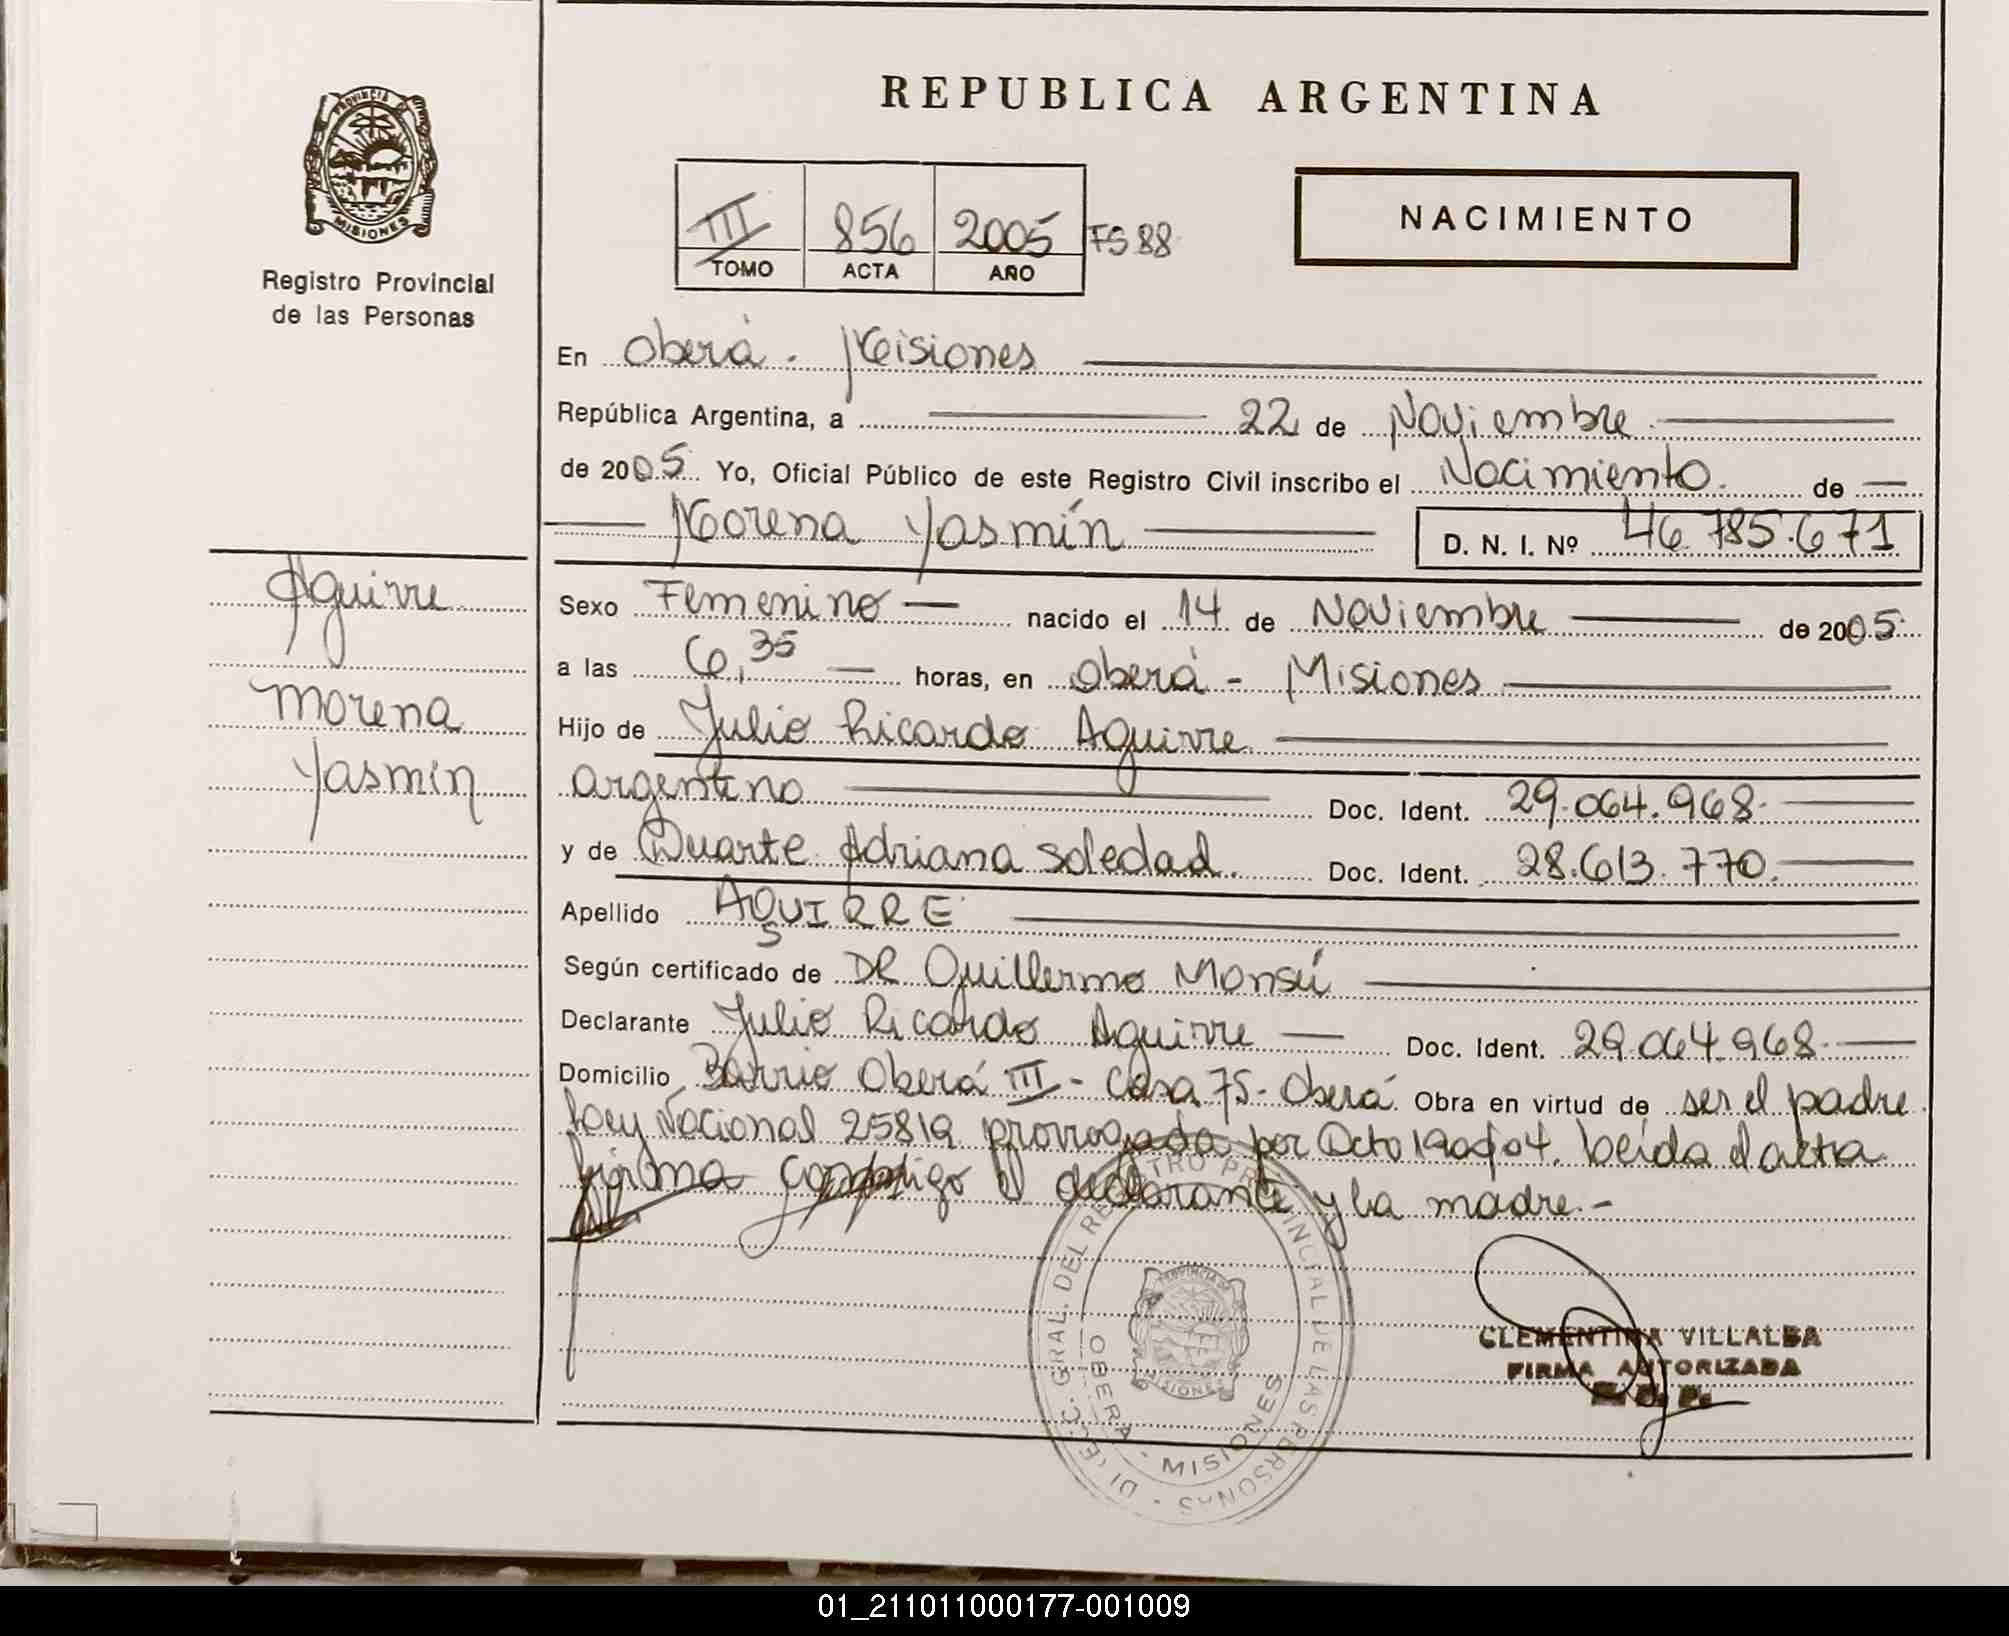 REPUBLICA ARGENTINA
PROVINCIA DE
MISIONES
Registro Provincial
de las Personas
III 856 2005 FS 88
TOMO ACTA AÑO
NACIMIENTO
En Oberá - Misiones
República Argentina, a 22 de Noviembre
de 2005 Yo, Oficial Público de este Registro Civil inscribo el Nacimiento. de
Morena Yasmín D. N. I. Nº 46.785.671
Aguirre
Morena
Yasmín
Sexo Femenino nacido el 14 de Noviembre de 2005
a las 6,35 horas, en Oberá - Misiones
Hijo de Julio Ricardo Aguirre
argentino Doc. Ident. 29.064.968
y de Duarte Adriana Soledad. Doc. Ident. 28.613.770.
Apellido AGUIRRE
Según certificado de DR Guillermo Monsú
Declarante Julio Ricardo Aguirre Doc. Ident. 29.064.968
Domicilio Barrio Oberá III - Casa 75 - Oberá Obra en virtud de ser el padre.
Ley Nacional 25819 prorrogada por Dcto 190 04. Leída el acta
firma conmigo el declarante y la madre.-
DIREC. GRAL. DEL REGISTRO PROVINCIAL DE LAS PERSONAS
OBERA - MISIONES
PROVINCIA DE
MISIONES
CLEMENTINA VILLALBA
FIRMA AUTORIZADA
01_211011000177-001009